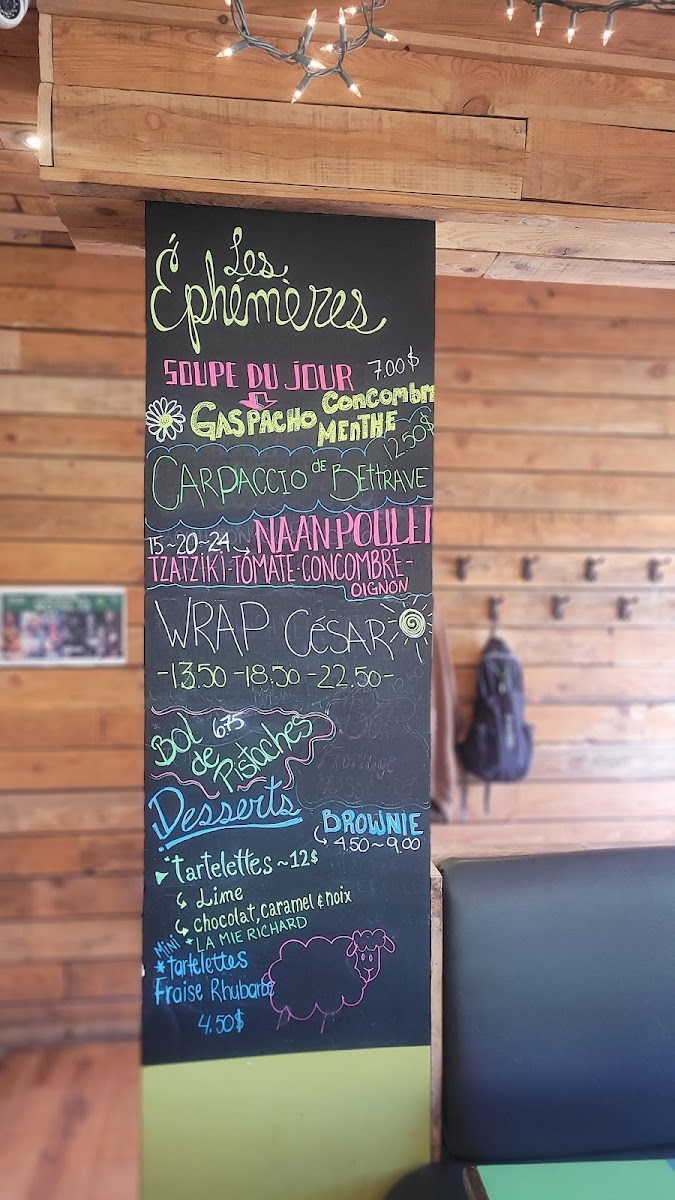 Les
Éphémères
SOUPE DU JOUR 7.00$
GASPACHO Concombr
MENTHE
12.50$
CARPACCIO de BETTRAVE
15~20~24 NAAN POULET
TZATZIKI-TOMATE-CONCOMBRE-
OIGNON
WRAP CÉSAR
-13.50-18.50-22.50-
Bol 6.75
de
Pistaches
Desserts
BROWNIE
4.50~9.00
*tartelettes ~12$
Lime
chocolat, caramel & noix
*LA MIE RICHARD
MINI
*tartelettes
Fraise Rhubarbe
4.50$